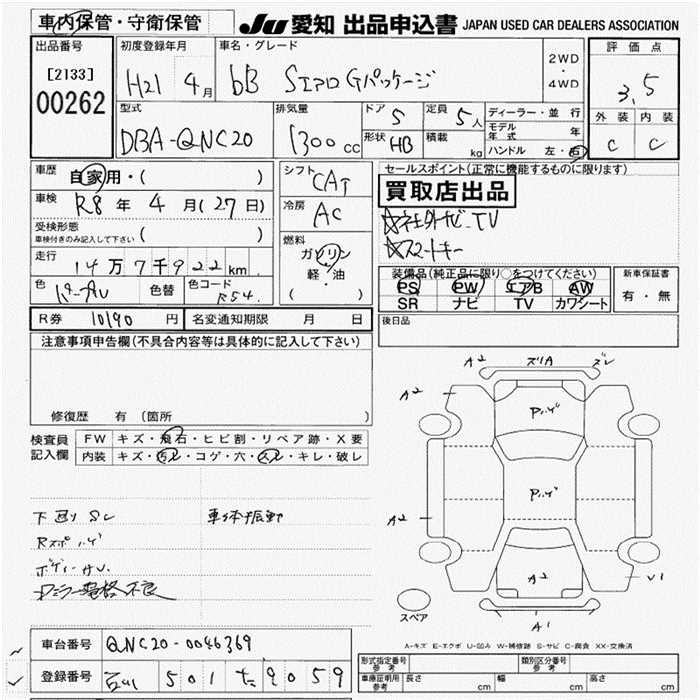 車内保管・守衛保管
JU 愛知 出品申込書 JAPAN USED CAR DEALERS ASSOCIATION
出品番号
[2133]
00262
初度登録年月
H21 4月
車名・グレード
bB SエアロGパッケージ
2WD
・
4WD
評価点
3.5
外装 内装
C C
型式
DBA-QNC20
排気量
1300cc
ドア 5
定員 5人
形状 HB
積載 kg
ディーラー・並行
モデル年式 年
ハンドル 左・右
車歴
自家用・( )
車検 R8年4月(27日)
受検形態
車検付きのみ記入して下さい ( )
走行
14万7千922km
色
色替
色コード
R54
シフト
CAT
冷房
AC
燃料
ガソリン
軽・油
( )
セールスポイント(正常に機能するものに限ります)
買取店出品
☆社外ナビ-TV
☆スマートキー
装備品(純正品に限り○をつけてください)
PS PW エアB AW
SR ナビ TV カワシート
新車保証書
有・無
R券 10190円
名変通知期限 月 日
後日品
注意事項申告欄(不具合内容等は具体的に記入して下さい)
修復歴 有(箇所 )
検査員
記入欄
FW キズ・飛石・ヒビ割・リペア跡・X要
内装 キズ・汚レ・コゲ・穴・スレ・キレ・破レ
下回りSC
車体振動
ボディーAU
ドアミラー電格不良
A2 ズリA ズレ
A2
A2
A2
A1
V1
スペア
A-キズ E-エクボ U-凹み W-補修跡 S-サビ C-腐食 XX-交換済
車台番号 QNC20-0046369
登録番号 501 9059
形式指定番号
参考
類別区分番号
参考
車庫証明用
参考
長さ cm 幅 cm 高さ cm